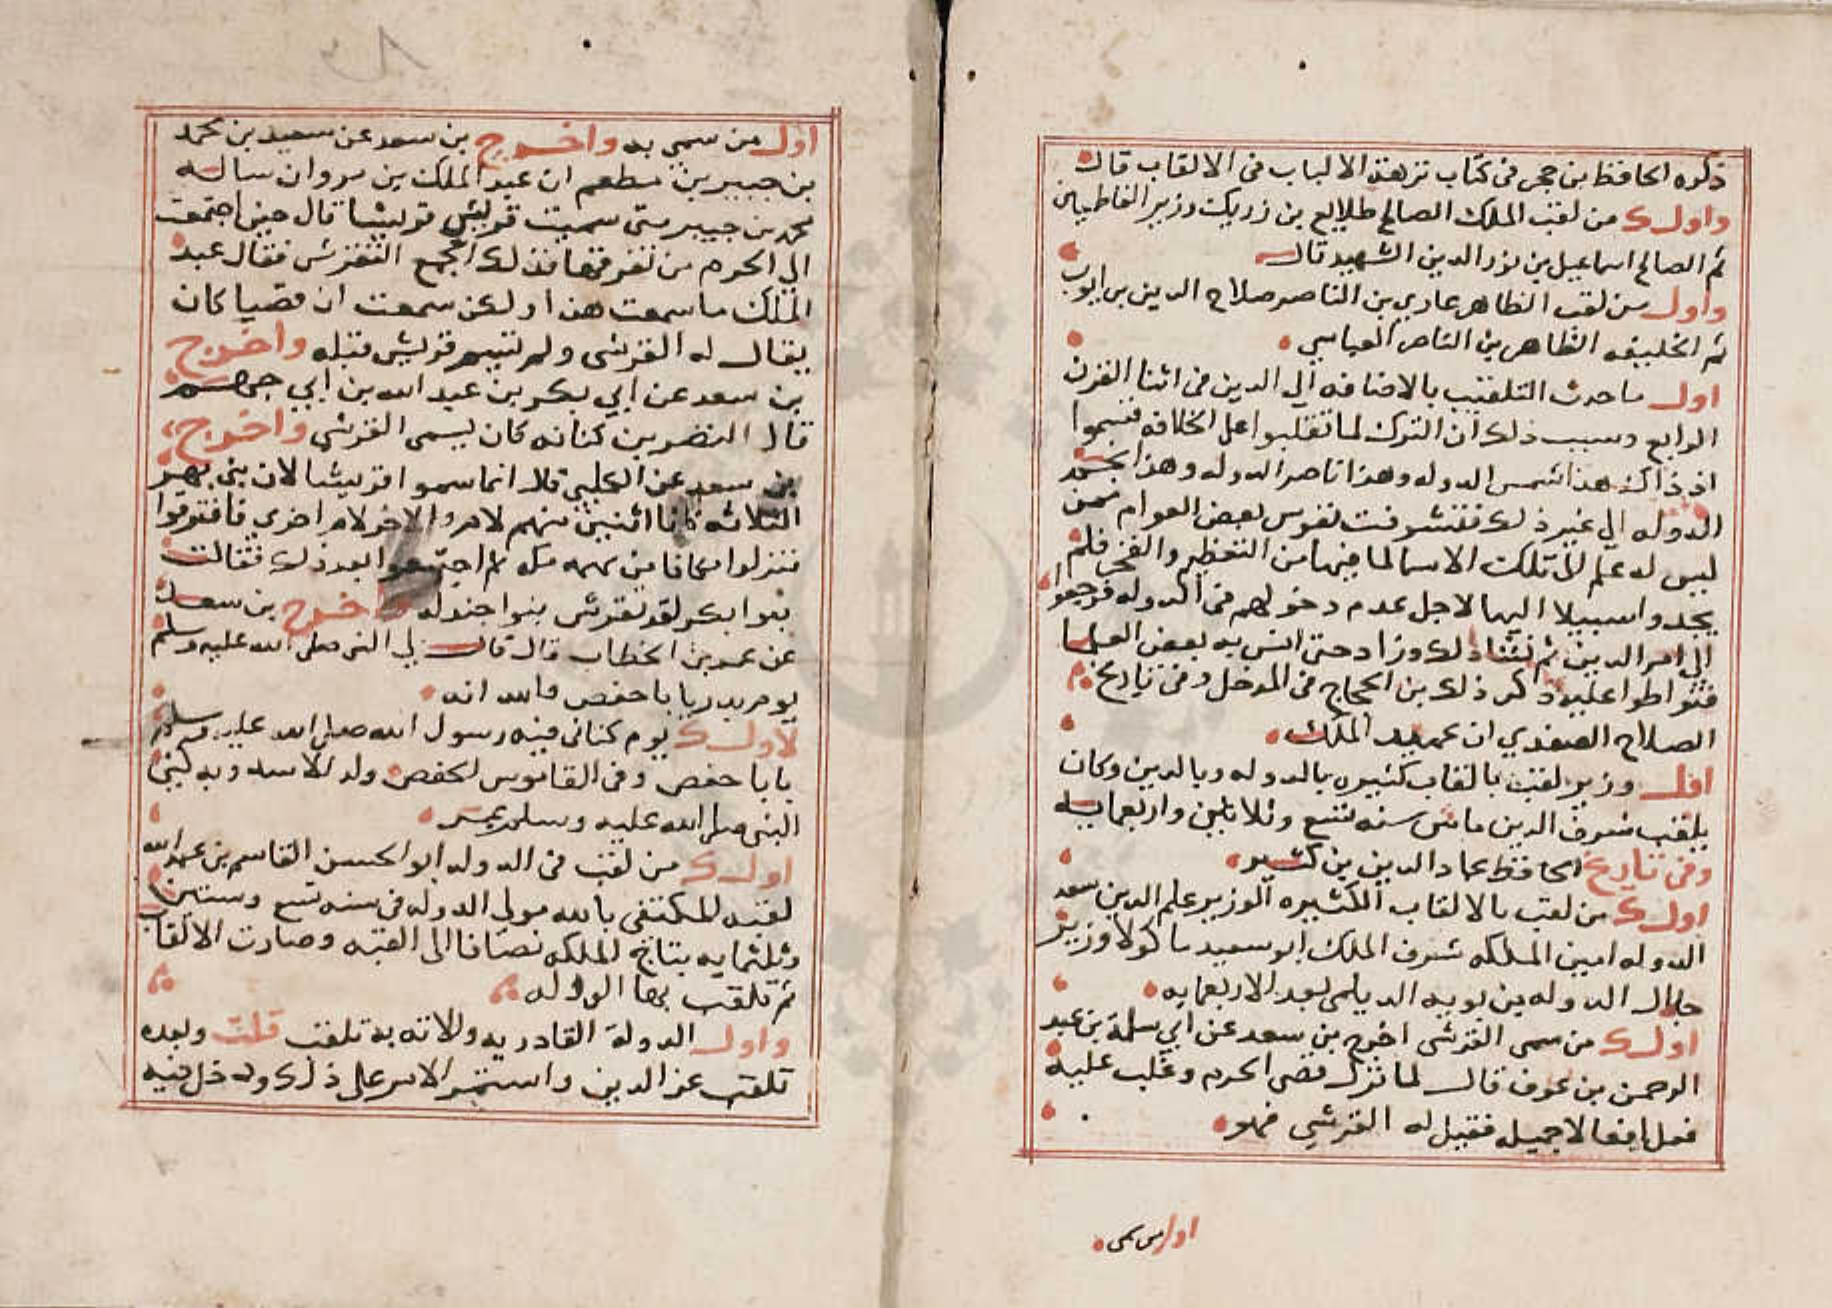 ذكره الحافظ بن حجر فى كتاب نزهة الالباب فى الالقاب قال
واول من لقب الملك الصالح طلايع بن زريك وزير الفاطميين
ثم الصالح اسماعيل بن نور الدين الشهيد قال
واول من لقب الظاهر غازي بن الناصر صلاح الدين بن ايوب
ثم الخليفه الظاهر بن الناصر العباسي
اول ما حدث التلقيب بالاضافه الي الدين فى اثنا القرن
الرابع وسبب ذلك ان الترك لما تغلبوا على الخلافه فسموا
اذ ذاك هذا شمس الدوله وهذا ناصر الدوله وهذا نجم
الدوله الي غير ذلك فتشوفت نفوس بعض العوام ممن
ليس له علم لتلك الاسما لما فيها من التعظيم والفخر فلم
يجدوا سبيلا اليها لاجل عدم دخولهم فى الدوله فرجعوا
الي امر الدين ثم فشا ذلك وزاد حتى انس به بعض العلما
فتواطوا عليه ذكر ذلك بن الحجاج فى المدخل وفى تاريخ
الصلاح الصفدي ان عميد الملك
اول وزير لقب بالقاب كثيره بالدوله وبالدين وكان
يلقب شرف الدين مات سنه تسع وثلاثين واربعمايه
وفى تاريخ الحافظ عماد الدين بن كثير
اول من لقب بالالقاب الكثيره الوزير علم الدين سعد
الدوله امين المملكه شرف الملك ابو سعيد ماكولا وزير
جلال الدوله بن بويه الديلمى بعد الاربعمايه
اول من سمى القرشى اخرج بن سعد عن ابي سلمة بن عبد
الرحمن بن عوف قال لما نزل قصى الحرم وغلب عليه
فعل افعالا جميله فقيل له القرشي فهو
اول من سمى
اول من سمي به واخرج بن سعد عن سعيد بن محمد
بن جبير بن مطعم ان عبد الملك بن مروان سال
محمد بن جبير متى سميت قريش قريشا قال حين اجتمعت
الى الحرم من تفرقها فذلك التجمع التقرش فقال عبد
الملك ما سمعت هذا ولكن سمعت ان قصيا كان
يقال له القرشى ولم تسم قريش قبله واخرج
بن سعد عن ابي بكر بن عبد الله بن ابي جهم
قال النضر بن كنانه كان يسمى القرشي واخرج
بن سعد عن الكلبي قال انما سموا قريشا لان بنى فهر
الثلاثه كانا اثنين منهم لام والاخر لام اخري فافترقوا
فنزلوا مكانا من تهمه مكه ثم اجتمعوا بعد ذلك فقالت
بنوا بكر لقد تقرش بنوا جندله واخرج بن سعد
عن عمر بن الخطاب قال قال لي النبى صلى الله عليه وسلم
يوم بدر يا باحفص والله انه
لاول يوم كنانى فيه رسول الله صلى الله عليه وسلم
بابا حفص وفى القاموس الحفص ولد الاسد وبه كنى
النبى صلى الله عليه وسلم عمر
اول من لقب فى الدوله ابو الحسن القاسم بن عبد الله
لقبه المكتفى بالله مولي الدوله فى سنه تسع وستين
وثلثمايه بتاج المله مضافا الى لقبه وصارت الالقاب
ثم تلقب بها الدوله
واول الدولة القادريه ولاته به تلقب قلت وبعده
تلقب عز الدين واستمر الامر على ذلك ودخل فيه